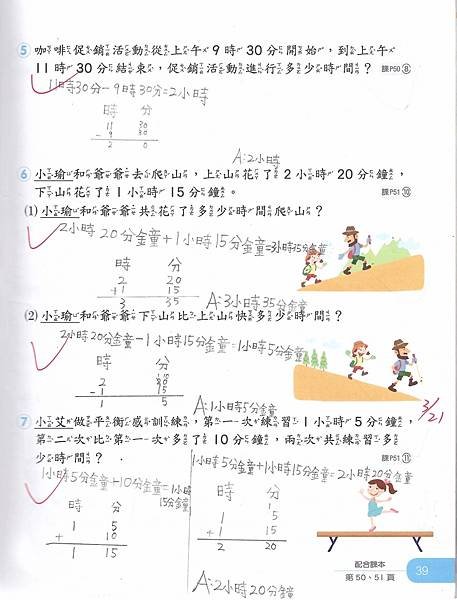 5 咖啡促銷活動從上午9時30分開始，到上午
11時30分結束，促銷活動進行多少時間？ 課P50⑧
11時30分－9時30分=2小時
時 分
11 30
－ 9 30
2 0
A:2小時
6 小瑜和爺爺去爬山，上山花了2小時20分鐘，
下山花了1小時15分鐘。 課P51⑩
(1) 小瑜和爺爺共花了多少時間爬山？
2小時20分金童＋1小時15分金童=3小時35分金童
時 分
2 20
＋1 15
3 35
A:3小時35分金童
(2) 小瑜和爺爺下山比上山快多少時間？
2小時20分金童－1小時15分金童=1小時5分金童
時 分
2 20
－1 15
1 5
A:1小時5分金童
3/21
7 小艾做平衡感訓練，第一次練習1小時5分鐘，
第二次比第一次多了10分鐘，兩次共練習多
少時間？ 課P51⑪
1小時5分金童＋10分金童=1小時
15分金童
時 分
1 5
＋ 10
1 15
1小時5分金童＋1小時15分金童=2小時20分金童
時 分
1 5
＋ 1 15
2 20
A:2小時20分金童
配合課本
第50、51頁
39